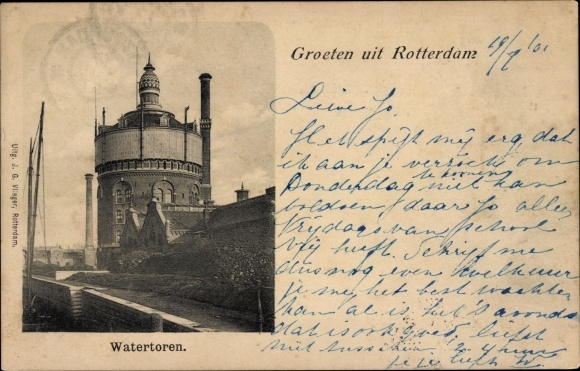 Groeten uit Rotterdam
Lieve Jo.
Het spijt mij erg, dat
ik aan je verzoek om
te komen
Donderdag niet kan
voldoen daar Jo alleen
Vrijdags van school
vrij heeft. Schrijf me
dus nog even hoe laat
je me het best wachten
kan al is het 's avonds
dat is ook goed, liefst
niet tusschen
Watertoren.
Uitg. J. G. Vlieger, Rotterdam.